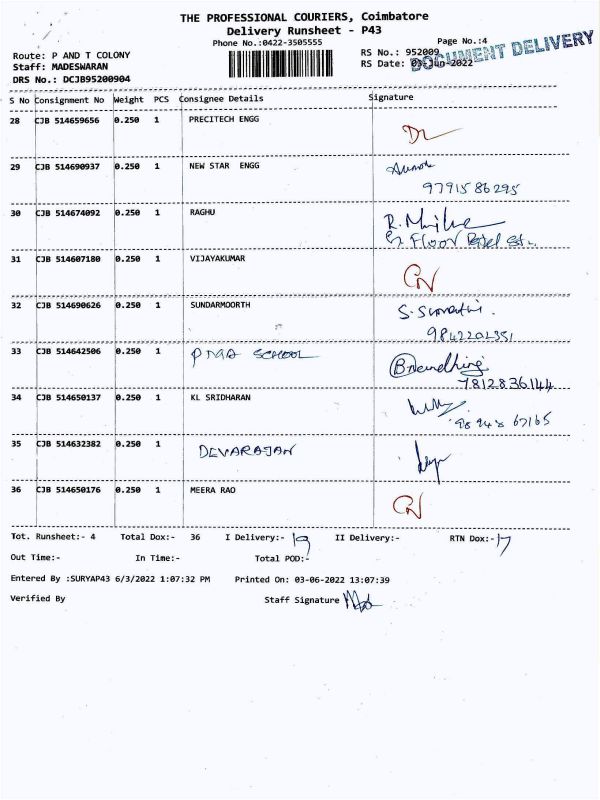 THE PROFESSIONAL COURIERS, Coimbatore
Delivery Runsheet - P43
Phone No.:0422-3505555
Page No.:4
Route: P AND T COLONY
RS No.: 952009
DOCUMENT DELIVERY
Staff: MADESWARAN
RS Date: 03-Jun-2022
DRS No.: DCJB95200904
S No Consignment No Weight PCS Consignee Details Signature
28 CJB 514659656 0.250 1 PRECITECH ENGG
29 CJB 514690937 0.250 1 NEW STAR ENGG
9791586295
30 CJB 514674092 0.250 1 RAGHU
Floor
31 CJB 514607180 0.250 1 VIJAYAKUMAR
32 CJB 514690626 0.250 1 SUNDARMOORTH
9842202351
33 CJB 514642506 0.250 1 SCHOOL
7812836144
34 CJB 514650137 0.250 1 KL SRIDHARAN
35 CJB 514632382 0.250 1 DEVARAJAN
36 CJB 514650176 0.250 1 MEERA RAO
Tot. Runsheet:- 4 Total Dox:- 36 I Delivery:- 19 II Delivery:- RTN Dox:- 17
Out Time:- In Time:- Total POD:-
Entered By :SURYAP43 6/3/2022 1:07:32 PM Printed On: 03-06-2022 13:07:39
Verified By Staff Signature